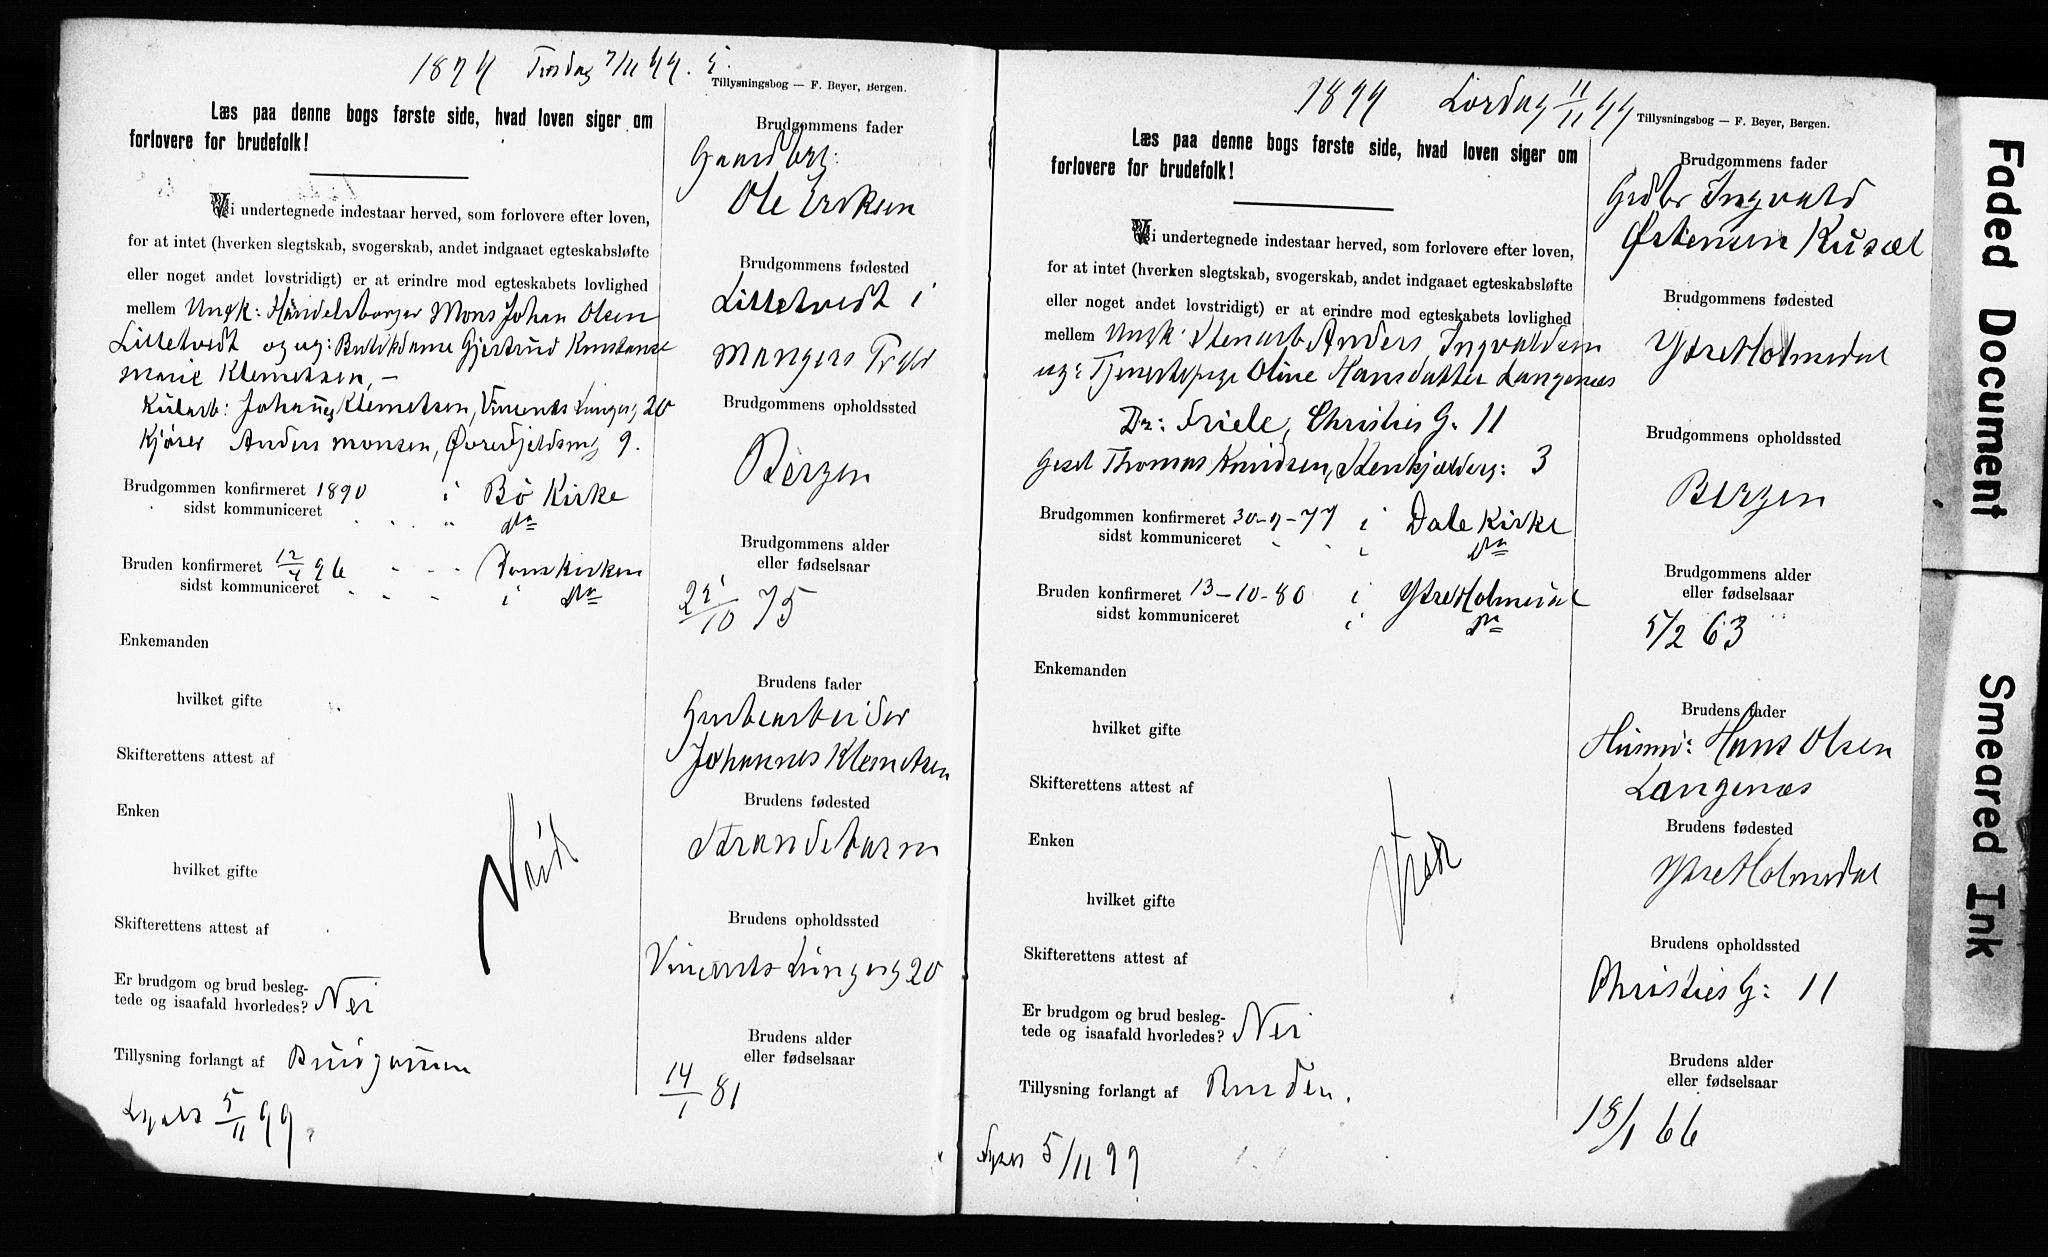 1899 Tirsdag 7/11 99. 5.
Tillysningsbog — F. Beyer, Bergen.
Læs paa denne bogs første side, hvad loven siger om
forlovere for brudefolk!
Vi undertegnede indestaar herved, som forlovere efter loven,
for at intet (hverken slegtskab, svogerskab, andet indgaaet egteskabsløfte
eller noget andet lovstridigt) er at erindre mod egteskabets lovlighed
mellem Ungk: Handelsborger Mons Johan Olsen
Litletvedt og ug: Butikdame Gjertrud Konstanse
Marie Klemetsen, —
Kularb: Johannes Klemetsen, Vincents Lungeg 20
Kjører Anders Monsen, Øvrefjeldsmg 9.
Brudgommen konfirmeret 1890 i Bø Kirke
sidst kommuniceret " do
Bruden konfirmeret 12/4 96 Domkirken
sidst kommuniceret i do
Enkemanden
hvilket gifte
Skifterettens attest af
Enken
hvilket gifte
Skifterettens attest af
Er brudgom og brud besleg-
tede og isaafald hvorledes? Nei
Tillysning forlangt af Brudgommen
Lyses 5/11 99.
Viede
Brudgommens fader
Gaardbrg:
Ole Eriksen
Brudgommens fødested
Litletvedt i
Mangers Prgld
Brudgommens opholdssted
Bergen
Brudgommens alder
eller fødselsaar
25/10 75
Brudens fader
Johannes Klemetsen
Brudens fødested
Strandebarm
Brudens opholdssted
Vincents Lungesg 20
Brudens alder
eller fødselsaar
14/1 81
1899 Lørdag 11/11 99
Tillysningsbog — F. Beyer, Bergen.
Læs paa denne bogs første side, hvad loven siger om
forlovere for brudefolk!
Vi undertegnede indestaar herved, som forlovere efter loven,
for at intet (hverken slegtskab, svogerskab, andet indgaaet egteskabsløfte
eller noget andet lovstridigt) er at erindre mod egteskabets lovlighed
mellem Ungk: Stenarb Anders Ingvaldsen
ug: Tjenestepige Oline Hansdatter Langenæs
Dr: Friele, Christies G. 11
Gesel Thomas Knudsen, Stenkjælderg: 3
Brudgommen konfirmeret 30-9-77 i Dale Kirke
sidst kommuniceret i do
Bruden konfirmeret 13-10-80 i Ytre Holmedal
sidst kommuniceret i do
Enkemanden
hvilket gifte
Skifterettens attest af
Enken
hvilket gifte
Skifterettens attest af
Er brudgom og brud besleg-
tede og isaafald hvorledes? Nei
Tillysning forlangt af Bruden.
Lyses 5/11 99
Viede
Brudgommens fader
Grdbr Ingvald
Østensen Kusæl
Brudgommens fødested
Ytre Holmedal
Brudgommens opholdssted
Bergen
Brudgommens alder
eller fødselsaar
5/2 63
Brudens fader
Husm: Hans Olsen
Langenæs
Brudens fødested
Ytre Holmedal
Brudens opholdssted
Christies G: 11
Brudens alder
eller fødselsaar
18/1 66
Faded Document
Smeared Ink